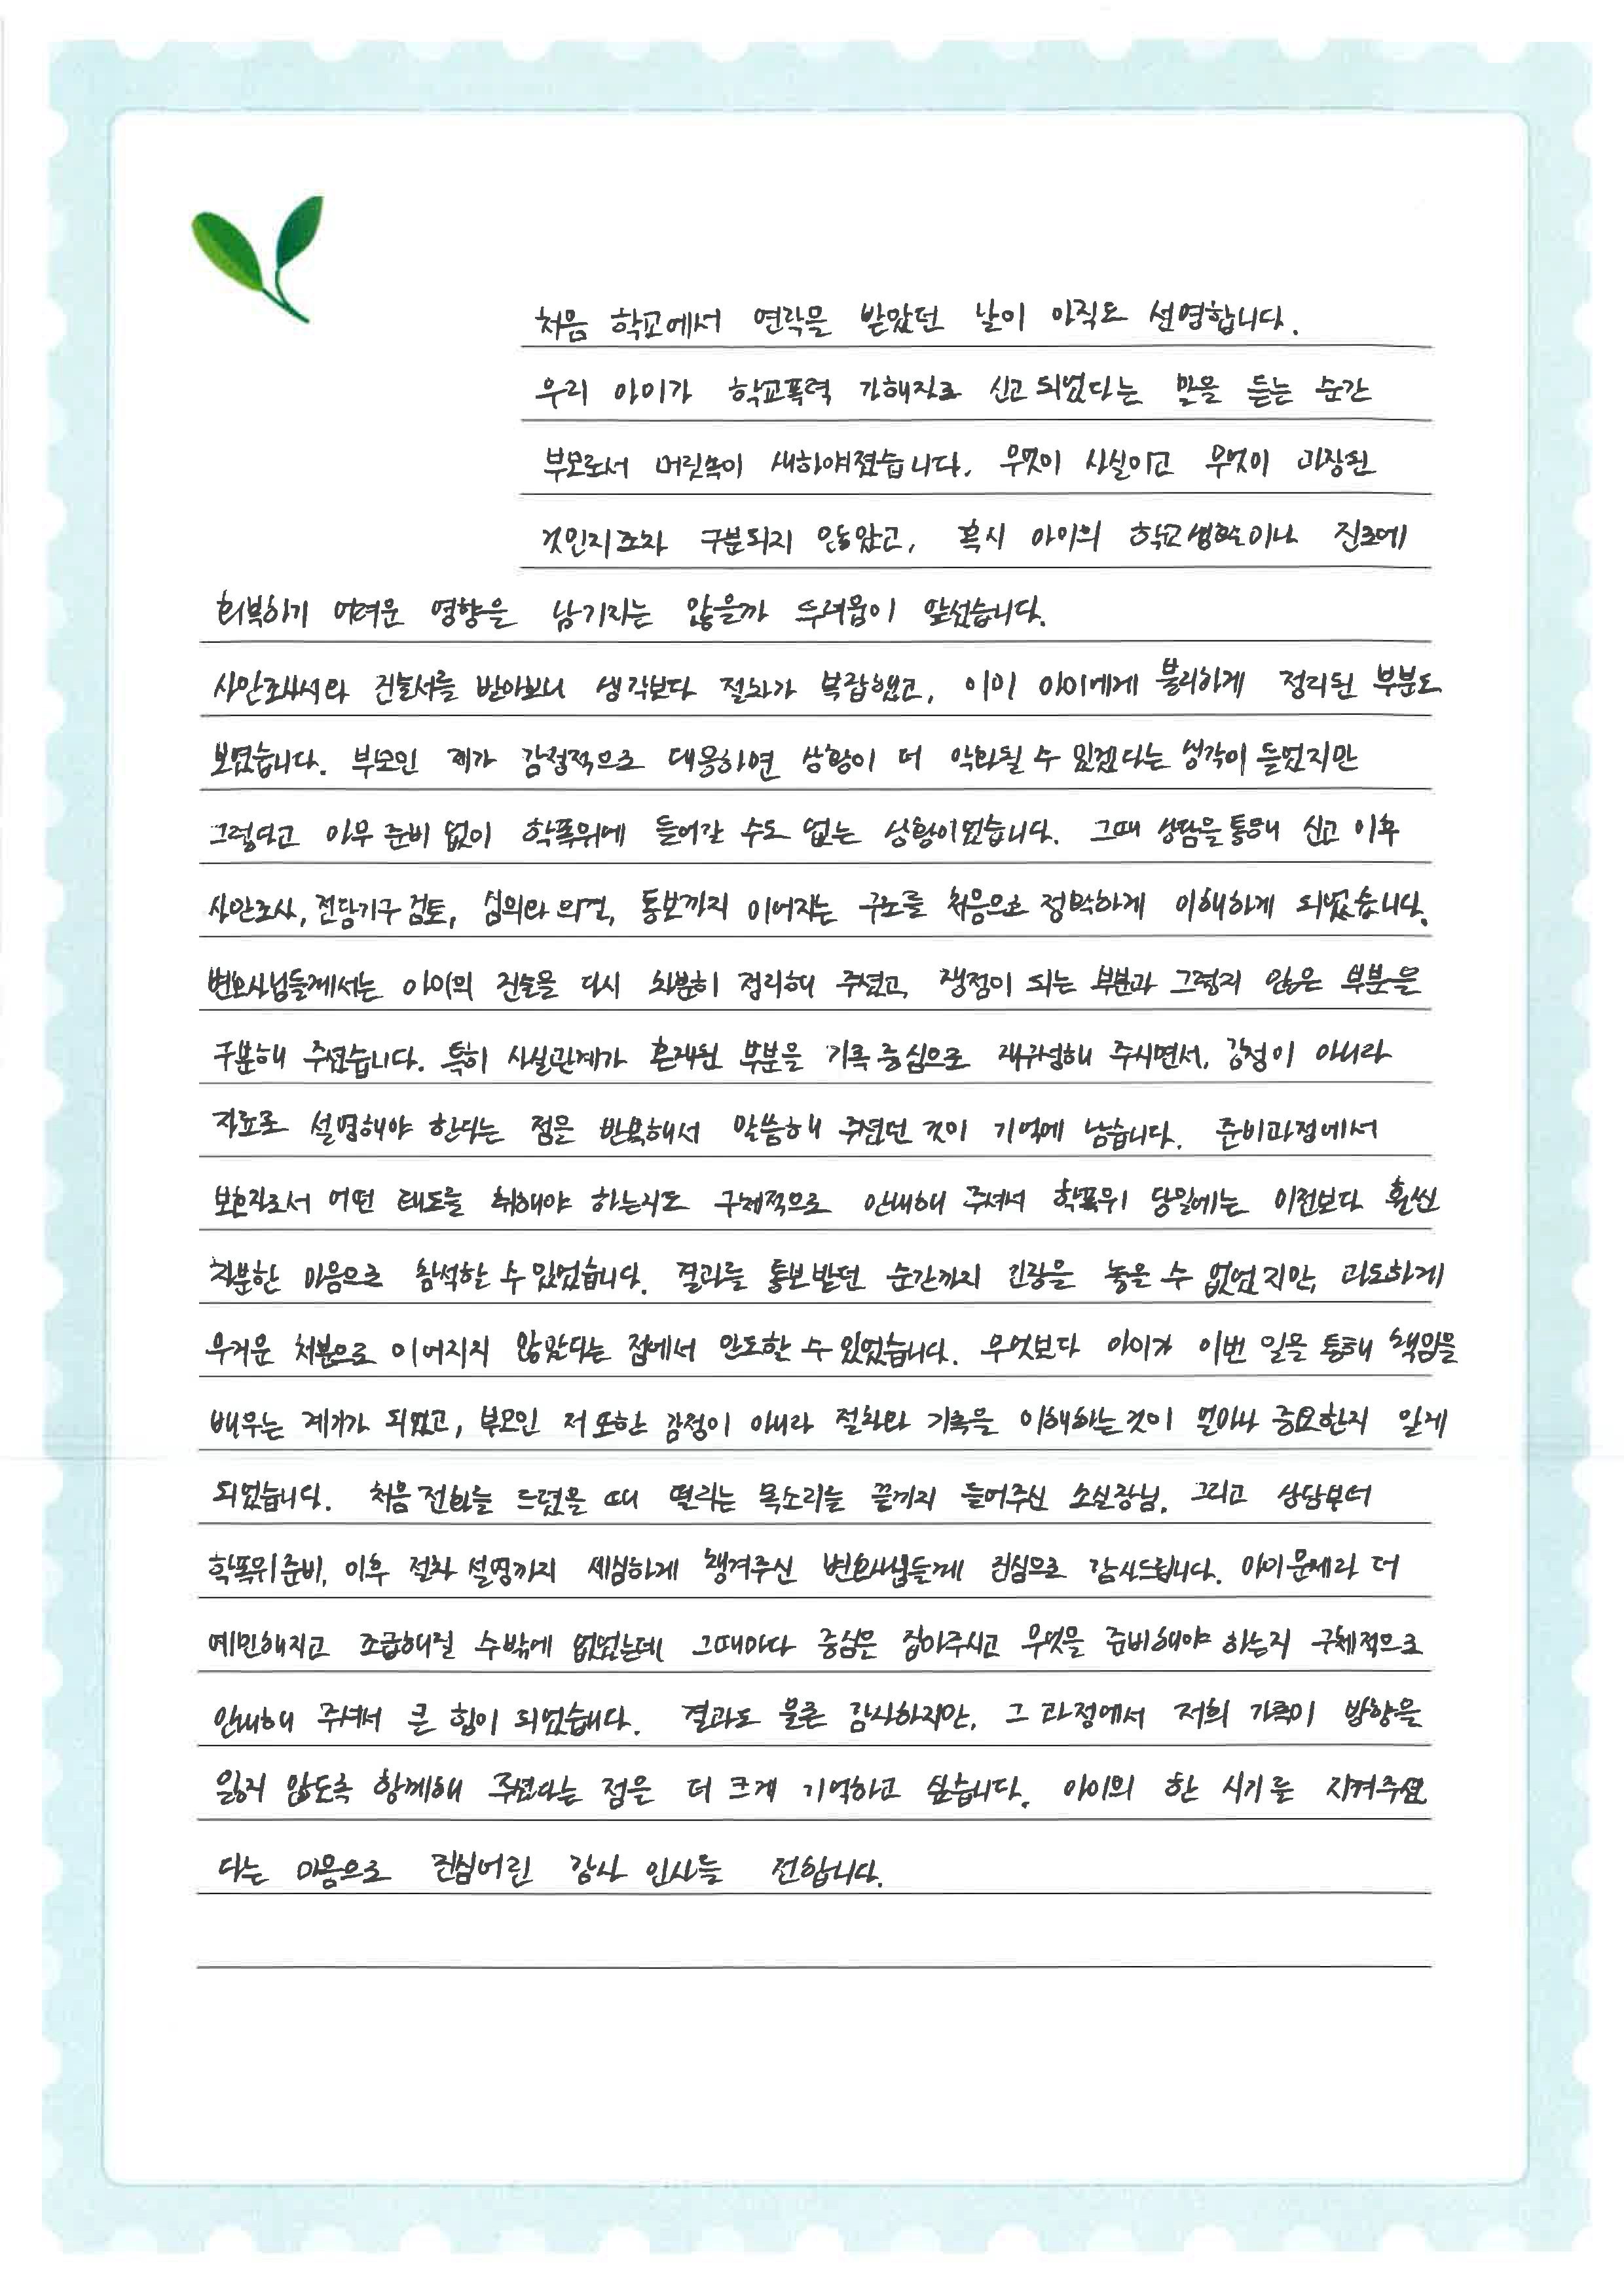 처음 학교에서 연락을 받았던 날이 아직도 선명합니다.
우리 아이가 학교폭력 가해자로 신고 되었다는 말을 듣는 순간
부모로서 머릿속이 새하얘졌습니다. 무엇이 사실이고 무엇이 과장된
것인지조차 구분되지 않았고, 혹시 아이의 학교생활이나 진로에
회복하기 어려운 영향을 남기지는 않을까 두려움이 앞섰습니다.
사안조사서와 진술서를 받아보니 생각보다 절차가 복잡했고, 이미 아이에게 불리하게 정리된 부분도
보였습니다. 부모인 제가 감정적으로 대응하면 상황이 더 악화될 수 있겠다는 생각이 들었지만
그렇다고 아무 준비 없이 학폭위에 들어갈 수도 없는 상황이었습니다. 그때 상담을 통해 신고 이후
사안조사, 전담기구 검토, 심의와 의결, 통보까지 이어지는 구조를 처음으로 정확하게 이해하게 되었습니다.
변호사님들께서는 아이의 진술을 다시 차분히 정리해 주셨고, 쟁점이 되는 부분과 그렇지 않은 부분을
구분해 주셨습니다. 특히 사실관계가 혼재된 부분을 기록 중심으로 재구성해 주시면서, 감정이 아니라
자료로 설명해야 한다는 점을 반복해서 말씀해 주셨던 것이 기억에 남습니다. 준비과정에서
보호자로서 어떤 태도를 취해야 하는지도 구체적으로 안내해 주셔서 학폭위 당일에는 이전보다 훨씬
차분한 마음으로 참석할 수 있었습니다. 결과를 통보받던 순간까지 긴장을 놓을 수 없었지만, 과도하게
무거운 처분으로 이어지지 않았다는 점에서 안도할 수 있었습니다. 무엇보다 아이가 이번 일을 통해 책임을
배우는 계기가 되었고, 부모인 저 또한 감정이 아니라 절차와 기록을 이해하는 것이 얼마나 중요한지 알게
되었습니다. 처음 전화를 드렸을 때 떨리는 목소리를 끝까지 들어주신 소실장님, 그리고 상담부터
학폭위 준비, 이후 절차 설명까지 세심하게 챙겨주신 변호사님들께 진심으로 감사드립니다. 아이 문제라 더
예민해지고 조급해질 수밖에 없었는데 그때마다 중심은 잡아주시고 무엇을 준비해야 하는지 구체적으로
안내해 주셔서 큰 힘이 되었습니다. 결과도 물론 감사하지만, 그 과정에서 저희 가족이 방향을
잃지 않도록 함께해 주셨다는 점은 더 크게 기억하고 싶습니다. 아이의 한 시기를 지켜주셨
다는 마음으로 진심어린 감사 인사를 전합니다.